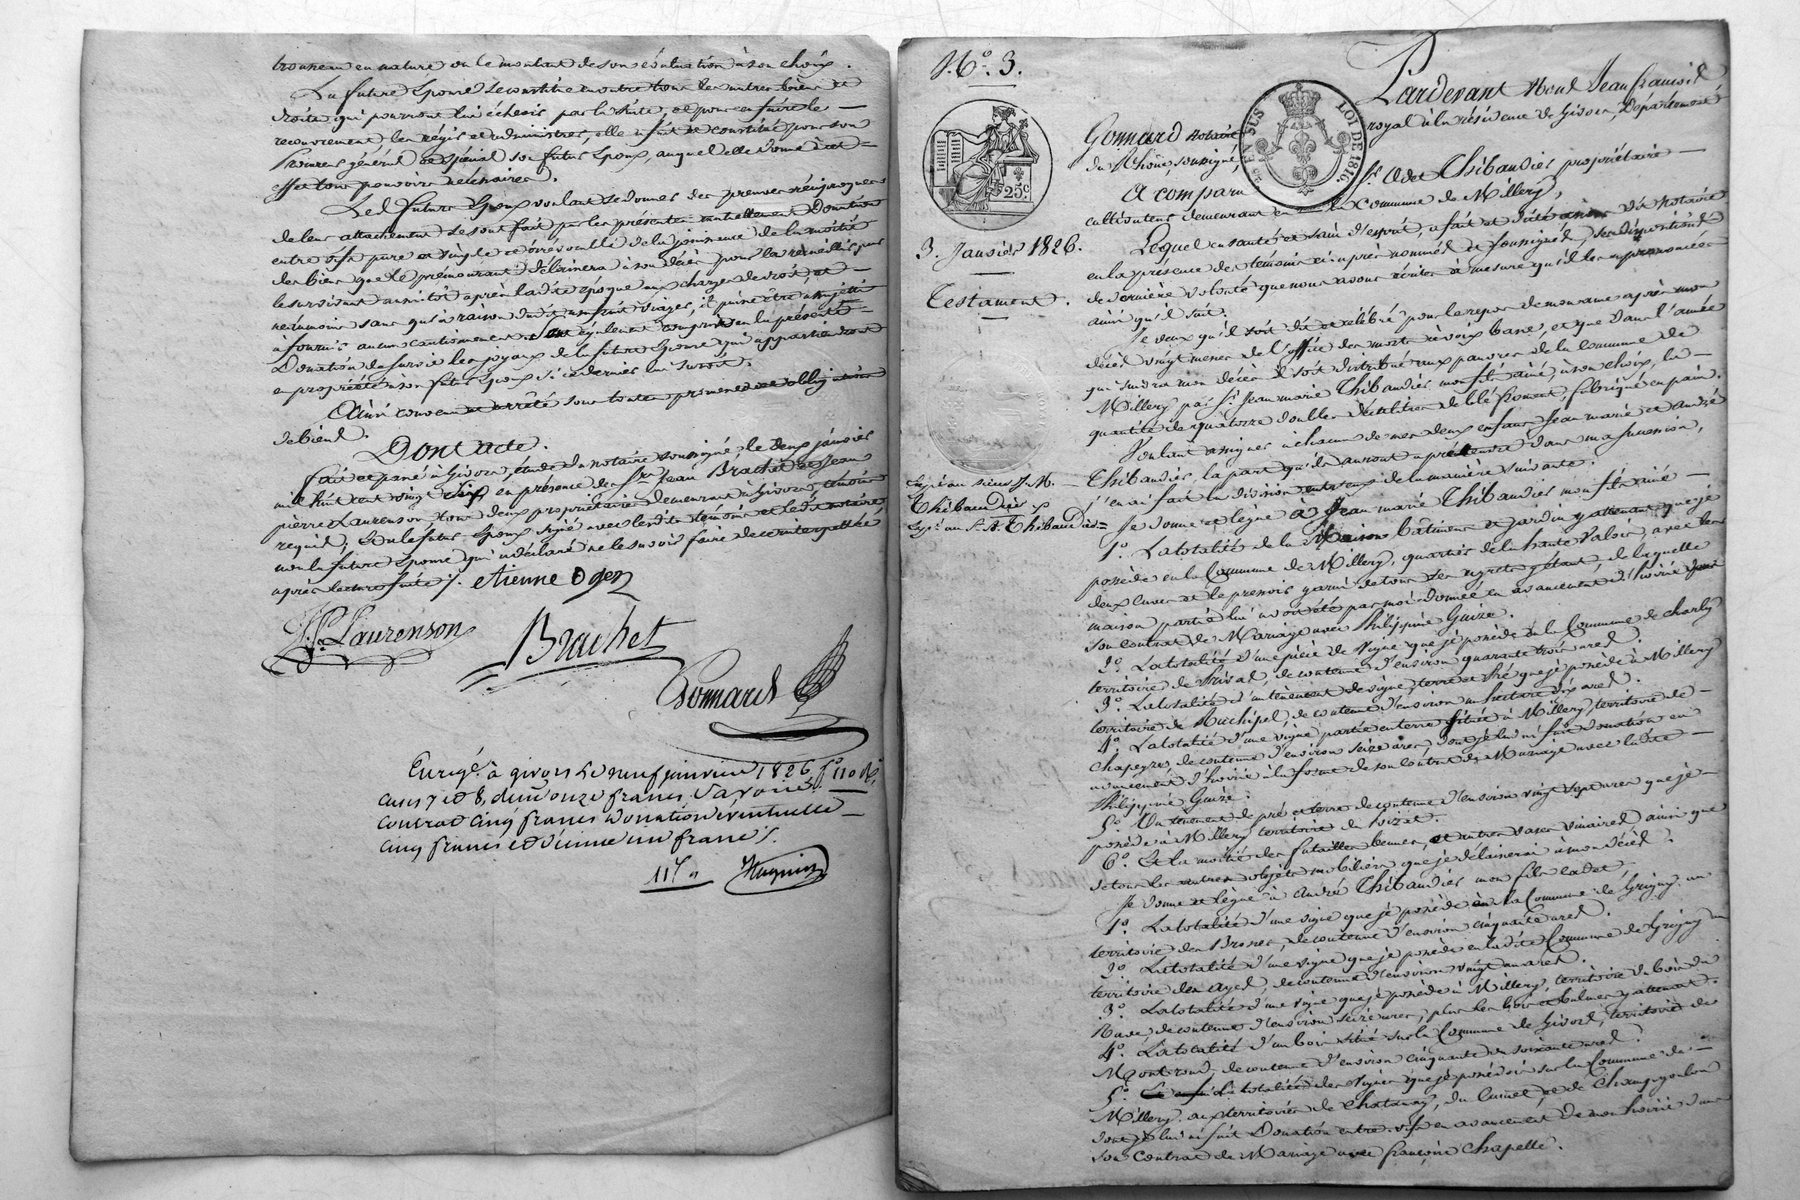 trousseau en nature ou le montant de son évaluation à son choix.
La future Epouse se constitue en outre tous les autres biens et
droits qui pourront lui échoir par la suite, et pour en faire le
recouvrement, les régir et administrer, elle a fait et constitué pour son
Procureur général et spécial son futur époux, auquel elle donne à cet
effet tous pouvoirs nécessaires.
Lesd. futurs Epoux voulant se donner des preuves réciproques
de leur attachement se sont fait par les présentes mutuellement Donation
entre vifs pure et simple et irrévocable de la jouissance de la moitié
des biens que le prémourant délaissera à son décès pour la recueillir par
le survivant aussitôt après ladite époque aux charges de droit, et
néanmoins sans qu'à raison dudit usufruit viager, il puisse être assujetti
à fournir aucun cautionnement et sont également compris en la présente
Donation de survie les joyaux de la future Epouse qui appartiendront
en propriété à son futur Epoux si ce dernier lui survit.
Ainsi convenu et arrêté sous toutes promesses et obligations
de biens.
Dont acte.
Fait et passé à Givors, étude du notaire soussigné, le deux janvier
mil huit cent vingt six, en présence de Srs. Jean Brachet et Jean
pierre Laurenson, tous deux propriétaires demeurant à Givors, témoins
requis, et le futur Epoux signé avec lesdits témoins et ledit notaire,
non la future Epouse qui a déclaré ne le savoir faire de ce interpellée
après lecture faite /. etienne Oger
J. P. Laurenson
Brachet
Gonnard
Enregé. à givors le neuf janvier 1826, f° 110 R°.
cases 7 et 8, reçu onze francs, savoir:
contrat cinq francs, donation éventuelle
cinq francs et dixième un franc.
N° 3.
25c.
LOI DE 1816
3. Janvier 1826.
Testament.
Expé. au sieur J. M.
Thibaudier
Expé. au S. A. Thibaudier
Pardevant Nous Jean françois
Gonnard notaire royal à la résidence de Givors, département
du Rhône, soussigné,
A comparu Sr. Odet Thibaudier propriétaire
cultivateur demeurant en la Commune de Millery,
Lequel en santé et sain d'esprit, a fait et dicté audit notaire
en la présence des témoins ci-après nommés et soussignés, ses dispositions
de dernière volonté que nous avons écrites à mesure qu'il les a prononcées
ainsi qu'il suit.
Je veux qu'il soit dit et célébré pour le repos de mon ame après mon
décès vingt messes de l'office des morts à voix basse, et que dans l'année
qui suivra mon décès il soit distribué aux pauvres de la Commune de
Millery par Sr. Jean marie Thibaudier mon fils ainé, à son choix, la
quantité de quatorze doubles décalitres de blé froment, fabriqué en pain.
Voulant assigner à chacun de mes deux enfans Jean marie et André
Thibaudier, la part qu'ils auront à prétendre dans ma succession,
j'en ai fait la division entr'eux de la manière suivante.
Je donne et lègue à Jean marie Thibaudier mon fils ainé
1°. La totalité de la Maison, bâtimens et jardin y attenant que je
possède en la Commune de Millery, quartier de la haute Valois, avec les
deux cuves et le pressoir garni de tous ses agrêts y étant, de laquelle
maison, partie lui a été par moi donnée en avancement d'hoirie dans
son contrat de Mariage avec Philippine Guize.
2°. La totalité d'une pièce de vigne que je possède en la Commune de charly
territoire de Frival de contenue d'environ quarante trois ares.
3°. La totalité d'un tènement de vigne, terre et pré que je possède à Millery
territoire de Ruchipel, de contenue d'environ un hectare dix ares.
4°. La totalité d'une vigne, partie en terre située à Millery, territoire de
chapeyre, de contenue d'environ seize ares, dont je lui ai fait donation en
avancement d'hoirie à la forme de son Contrat de Mariage avec ladite
Philippine Guize.
5°. Un tènement de pré et terre de contenue d'environ vingt sept ares que je
possède à Millery territoire du Poizat.
6°. Et la moitié des futailles, bennes, et autres vases vinaires ainsi que
de tous les autres objets mobiliers que je délaisserai à mon décès.
Je donne et lègue à André Thibaudier mon fils cadet,
1°. La totalité d'une vigne que je possède en la Commune de Grigny au
territoire des Brosses, de contenue d'environ cinquante ares.
2°. La totalité d'une vigne que je possède en ladite Commune de Grigny au
territoire des Ayes, de contenue d'environ vingt un ares.
3°. La totalité d'une vigne que je possède à Millery, territoire du bois du
de contenue d'environ seize ares, plus les bois et balmes y attenant.
4°. La totalité d'un bois situé sur la Commune de Givors, territoire de
Montrond, de contenue d'environ cinquante ou soixante ares.
5°. La totalité des vignes que je possédois sur la Commune de
Millery, aux territoires de Chatanay, du Cumel, et de Champgonbon
dont je lui ai fait Donation entre vifs en avancement de mon hoirie dans
son contrat de Mariage avec françoise Chapelle.